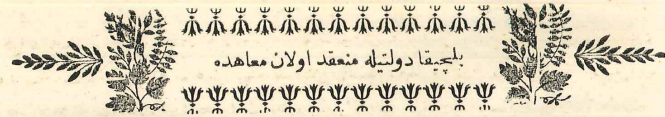 بلچيقا دولتيله منعقد اولان معاهده